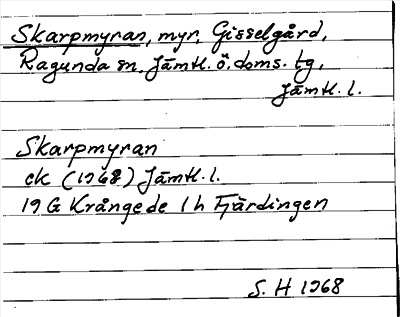 Skarpmyran, myr, Gisselgård,
Ragunda sn. Jämtl. ö. doms. tg,
Jämtl. l.
Skarpmyran
ek (1968) Jämtl. l.
19 G Krångede 1 h Fjärdingen
S. H 1968